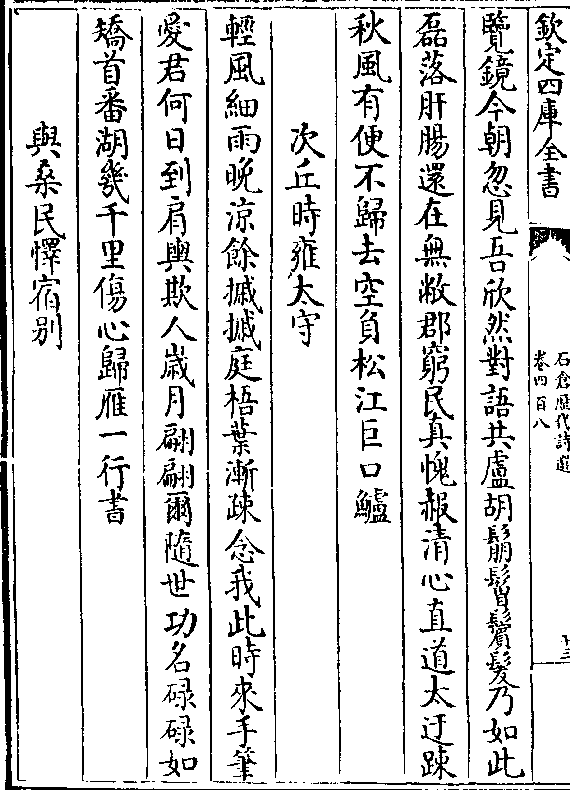 欽定四庫全書
石倉歴代詩選
卷四百八
十三
覽鏡今朝忽見吾欣然對語共盧胡鬅鬙鬢髮乃如此
磊落肝腸還在無敝郡窮民真愧赧清心直道太迂踈
秋風有便不歸去空負松江巨口鱸
次丘時雍太守
輕風細雨晩涼餘摵摵庭梧葉漸疎念我此時來手筆
愛君何日到肩輿欺人歲月翩翩爾隨世功名碌碌如
矯首番湖幾千里傷心歸雁一行書
與桑民懌宿别